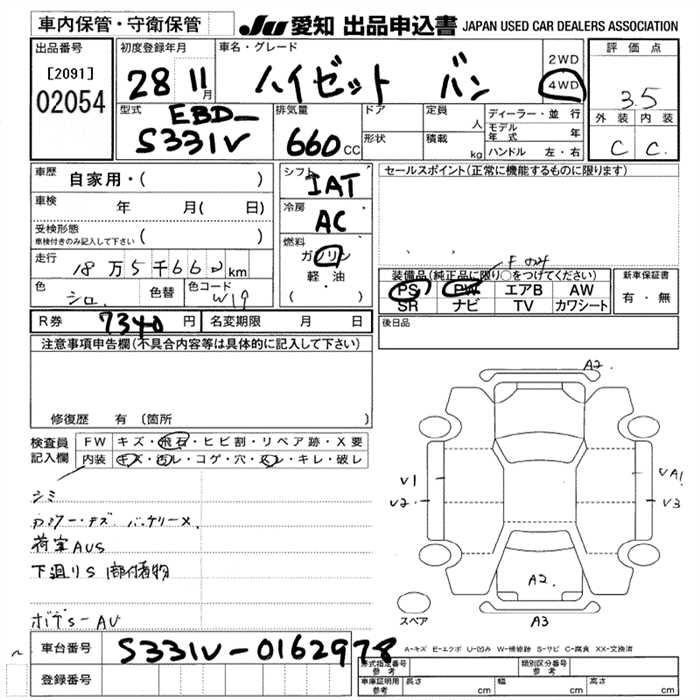 車内保管・守衛保管
JU 愛知 出品申込書 JAPAN USED CAR DEALERS ASSOCIATION
出品番号
[2091]
02054
初度登録年月
28 11月
車名・グレード
ハイゼット バン
2WD
4WD
評価点
3.5
外装 内装
C C
型式
EBD-
S331V
排気量
660cc
ドア
形状
定員
人
積載
kg
ディーラー・並行
モデル年式 年
ハンドル 左・右
車歴 自家用・( )
車検 年 月( 日)
受検形態
車検付きのみ記入して下さい ( )
走行 18万5千660km
色 シロ 色替 色コード W19
シフト
IAT
冷房
AC
燃料
ガソリン
軽油
( ・ )
セールスポイント(正常に機能するものに限ります)
Fのみ
装備品(純正品に限り○をつけてください)
PS PW エアB AW
SR ナビ TV カワシート
新車保証書
有・無
R券 7340円 名変期限 月 日
後日品
注意事項申告欄(不具合内容等は具体的に記入して下さい)
修復歴 有(箇所
検査員記入欄
FW キズ・飛石・ヒビ割・リペア跡・X要
内装 キズ・汚レ・コゲ・穴・スレ・キレ・破レ
シミ
カウラー・キズ バッテリーX.
荷室AUS
下廻りS 部付着物
ボデS-AU
A2
V1
V2
VA1
V3
A2
A3
スペア
車台番号 S331V-0162978
登録番号
A-キズ E-エクボ U-凹み W-補修跡 S-サビ C-腐食 XX-交換済
形式指定番号
参考
類別区分番号
参考
車庫証明用
参考
長さ cm 幅 cm 高さ cm